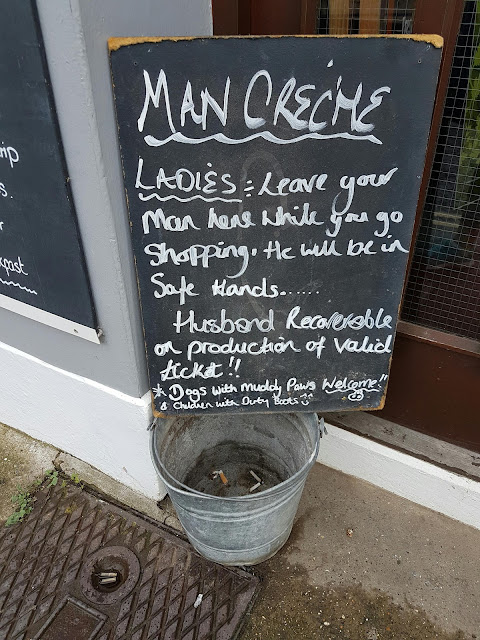 MAN CRECHE
LADIES := Leave your
Man here while you go
Shopping. He will be in
Safe Hands......
Husband Recoverable
on production of Valid
ticket!!
* Dogs with Muddy Paws Welcome!!
& Children with Dirty Boots
s.